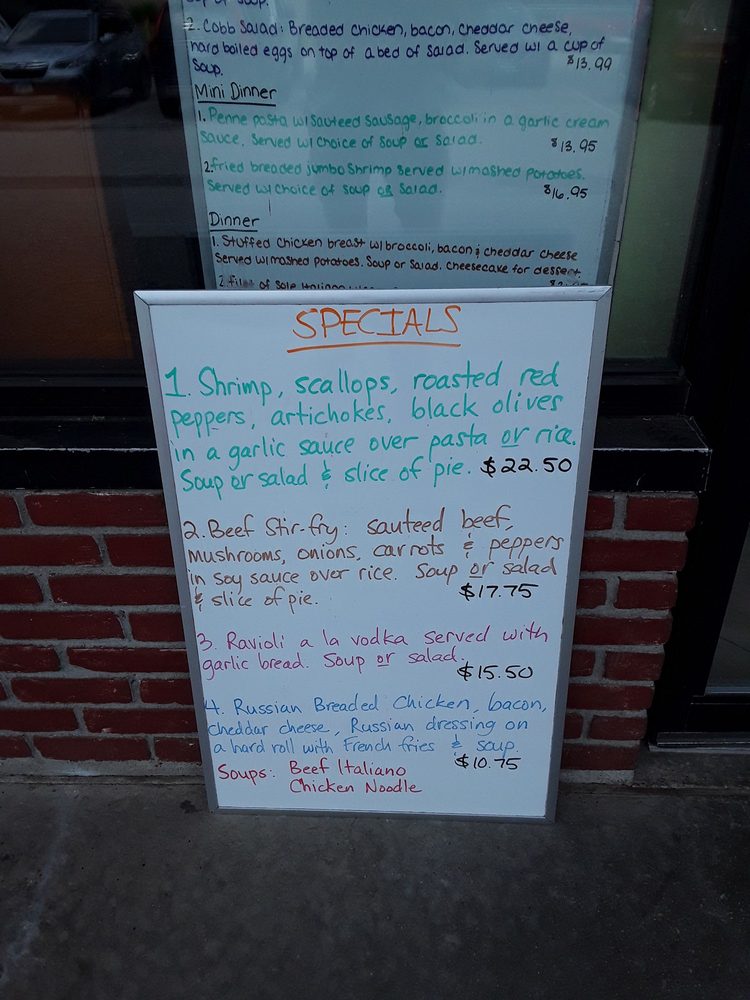 2. Cobb Salad: Breaded Chicken, bacon, cheddar cheese,
hard boiled eggs on top of a bed of salad. Served w/ a cup of
Soup. $13.99
Mini Dinner
1. Penne pasta w/ sauteed sausage, broccoli in a garlic cream
sauce. Served w/ choice of soup or salad. $13.95
2. fried breaded jumbo shrimp served w/ mashed potatoes.
Served w/ choice of soup or salad. $16.95
Dinner
1. Stuffed chicken breast w/ broccoli, bacon & cheddar cheese
Served w/ mashed potatoes. Soup or Salad. Cheesecake for dessert.
2. filet of Sole Italiano
SPECIALS
1. Shrimp, scallops, roasted red
peppers, artichokes, black olives
in a garlic sauce over pasta or rice.
Soup or salad & slice of pie. $22.50
2. Beef Stir-fry: sauteed beef,
mushrooms, onions, carrots & peppers
in soy sauce over rice. Soup or salad
& slice of pie. $17.75
3. Ravioli a la vodka served with
garlic bread. Soup or salad. $15.50
4. Russian Breaded Chicken, bacon,
cheddar cheese, Russian dressing on
a hard roll with French fries & soup.
$10.75
Soups: Beef Italiano
Chicken Noodle